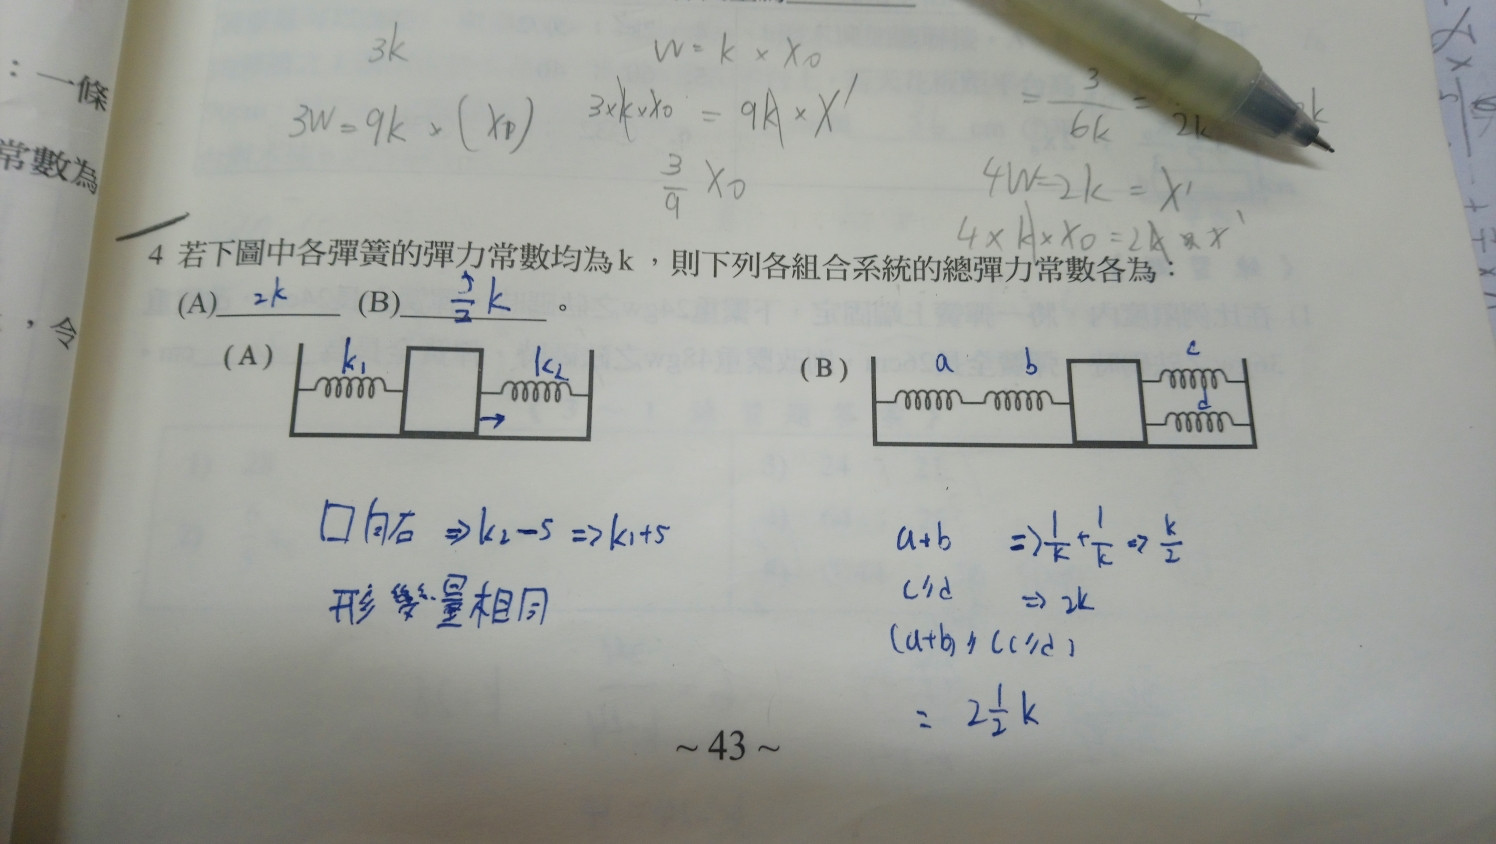 ：一條
常數為
，令
3k
W = k × X0
3W = 9k × (X0)
3×k×X0 = 9k × X'
3/9 X0
= 3/6k =
2k
4W=2k = X'
4×k×X0 = 2k × X'
4 若下圖中各彈簧的彈力常數均為k，則下列各組合系統的總彈力常數各為：
(A) 2k (B) 5/2 k 。
(A) k1 k2 →
(B) a b c d
口向右 ⇒ k2-S ⇒ k1+S
形變量相同
a+b ⇒ 1/k + 1/k ⇒ k/2
c//d ⇒ 2k
(a+b) // (c//d)
= 2 1/2 k
~ 43 ~